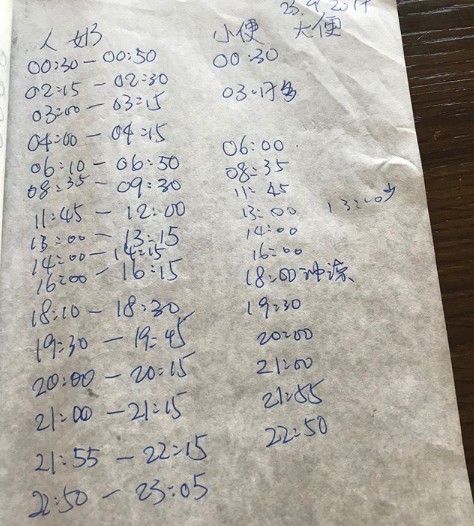 23.9.2017
人奶 小便 大便
00:30 - 00:50 00:30
02:15 - 02:30
03:00 - 03:15 03:15多
04:00 - 04:15
06:10 - 06:50 06:00
08:35 - 09:30 08:35
11:45 - 12:00 11:45
13:00 - 13:15 13:00 13:00少
14:00 - 14:15 14:00
16:00 - 16:15 16:00
18:10 - 18:30 18:00冲凉
19:30 - 19:45 19:30
20:00 - 20:15 20:00
21:00 - 21:15 21:00
21:55 - 22:15 21:55
22:50 - 23:05 22:50